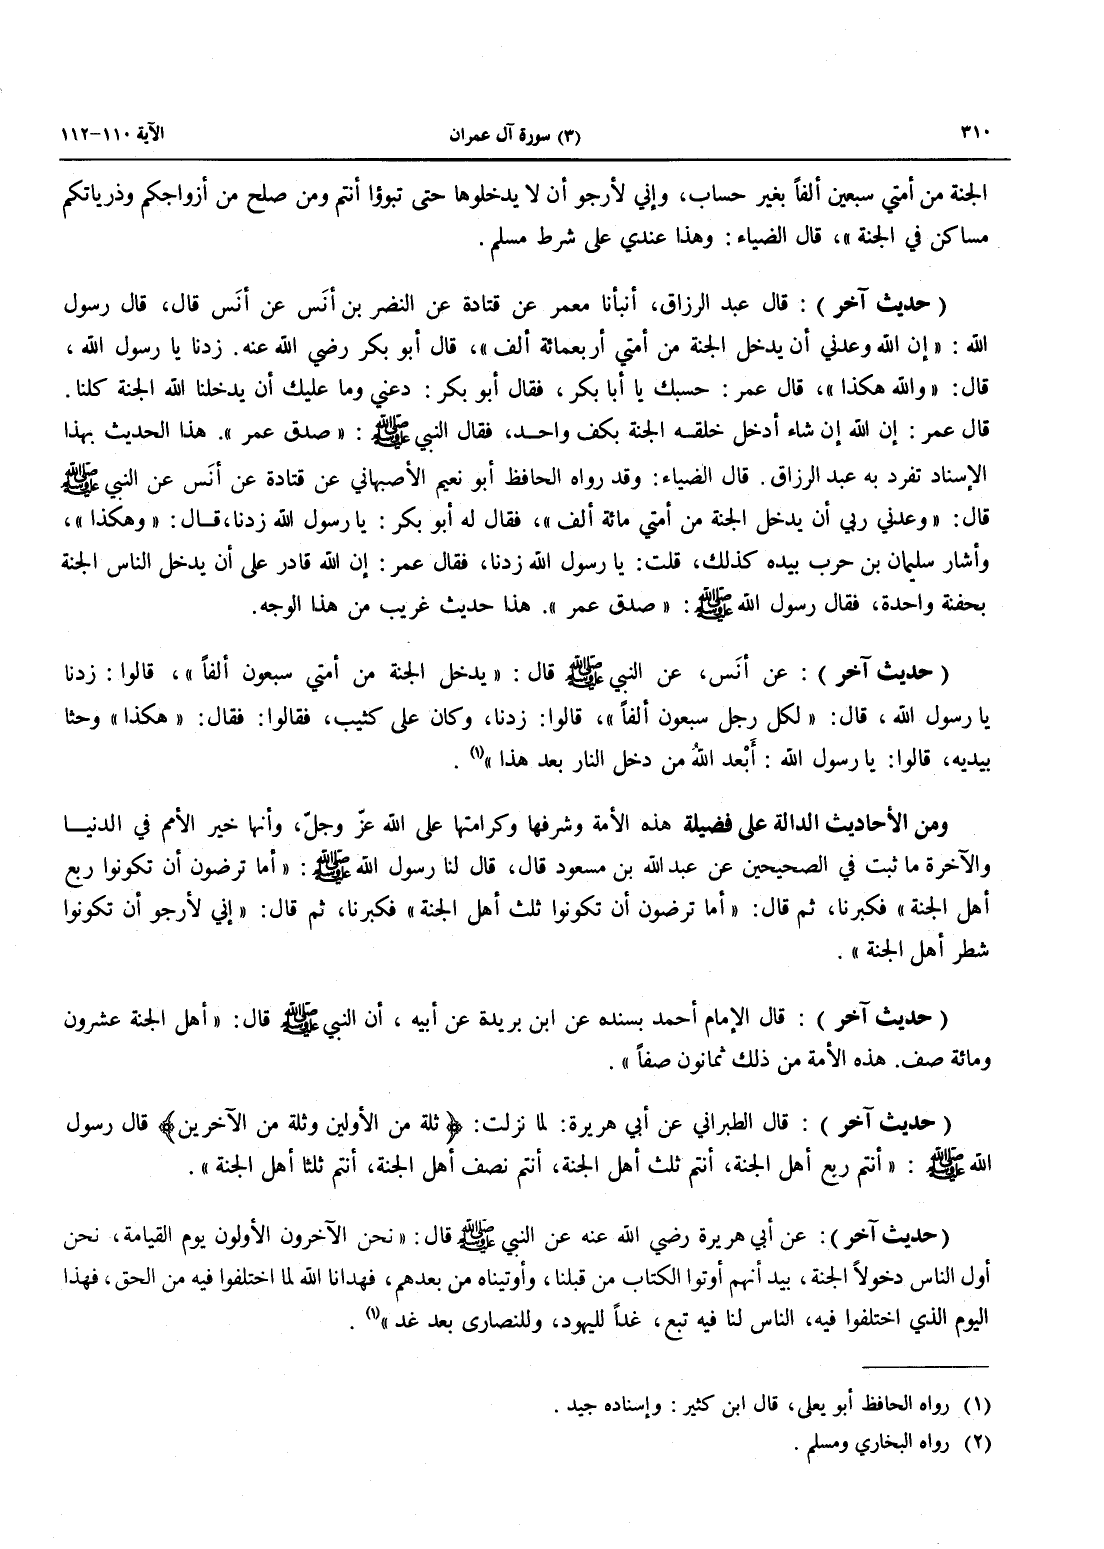 ٣١٠ (٣) سورة آل عمران الآية ١١٠-١١٢
الجنة من أمتي سبعين ألفاً بغير حساب، وإني لأرجو أن لا يدخلوها حتى تبوؤا أنتم ومن صلح من أزواجكم وذرياتكم
مساكن في الجنة »، قال الضياء : وهذا عندي على شرط مسلم .
( حديث آخر ) : قال عبد الرزاق، أنبأنا معمر عن قتادة عن النضر بن أنَس عن أنَس قال، قال رسول
الله : « إن الله وعدني أن يدخل الجنة من أمتي أربعمائة ألف »، قال أبو بكر رضي الله عنه. زدنا يا رسول الله ،
قال: « والله هكذا »، قال عمر : حسبك يا أبا بكر ، فقال أبو بكر : دعني وما عليك أن يدخلنا الله الجنة كلنا .
قال عمر : إن الله إن شاء أدخل خلقه الجنة بكف واحد، فقال النبي ﷺ : « صدق عمر ». هذا الحديث بهذا
الإسناد تفرد به عبد الرزاق. قال الضياء: وقد رواه الحافظ أبو نعيم الأصبهاني عن قتادة عن أنَس عن النبي ﷺ
قال: « وعدني ربي أن يدخل الجنة من أمتي مائة ألف »، فقال له أبو بكر : يا رسول الله زدنا، قال: « وهكذا »،
وأشار سليمان بن حرب بيده كذلك، قلت: يا رسول الله زدنا، فقال عمر : إن الله قادر على أن يدخل الناس الجنة
بحفنة واحدة، فقال رسول الله ﷺ : « صدق عمر ». هذا حديث غريب من هذا الوجه.
( حديث آخر ) : عن أنَس، عن النبي ﷺ قال : « يدخل الجنة من أمتي سبعون ألفاً »، قالوا : زدنا
يا رسول الله ، قال: « لكل رجل سبعون ألفاً »، قالوا: زدنا، وكان على كثيب، فقالوا: فقال: « هكذا » وحثا
بيديه، قالوا: يا رسول الله : أَبْعد اللهُ من دخل النار بعد هذا »(١) .
ومن الأحاديث الدالة على فضيلة هذه الأمة وشرفها وكرامتها على الله عزّ وجلّ، وأنها خير الأمم في الدنيا
والآخرة ما ثبت في الصحيحين عن عبد الله بن مسعود قال، قال لنا رسول الله ﷺ : « أما ترضون أن تكونوا ربع
أهل الجنة » فكبرنا، ثم قال: « أما ترضون أن تكونوا ثلث أهل الجنة » فكبرنا، ثم قال: « إني لأرجو أن تكونوا
شطر أهل الجنة » .
( حديث آخر ) : قال الإمام أحمد بسنده عن ابن بريدة عن أبيه ، أن النبي ﷺ قال: « أهل الجنة عشرون
ومائة صف. هذه الأمة من ذلك ثمانون صفاً » .
( حديث آخر ) : قال الطبراني عن أبي هريرة: لما نزلت: ﴿ثلة من الأولين وثلة من الآخرين﴾ قال رسول
الله ﷺ : « أنتم ربع أهل الجنة، أنتم ثلث أهل الجنة، أنتم نصف أهل الجنة، أنتم ثلثا أهل الجنة » .
( حديث آخر ) : عن أبي هريرة رضي الله عنه عن النبي ﷺ قال: « نحن الآخرون الأولون يوم القيامة، نحن
أول الناس دخولاً الجنة، بيد أنهم أوتوا الكتاب من قبلنا، وأوتيناه من بعدهم، فهدانا الله لما اختلفوا فيه من الحق، فهذا
اليوم الذي اختلفوا فيه، الناس لنا فيه تبع، غداً لليهود، وللنصارى بعد غد »(١) .
(١) رواه الحافظ أبو يعلى، قال ابن كثير : وإسناده جيد .
(٢) رواه البخاري ومسلم .